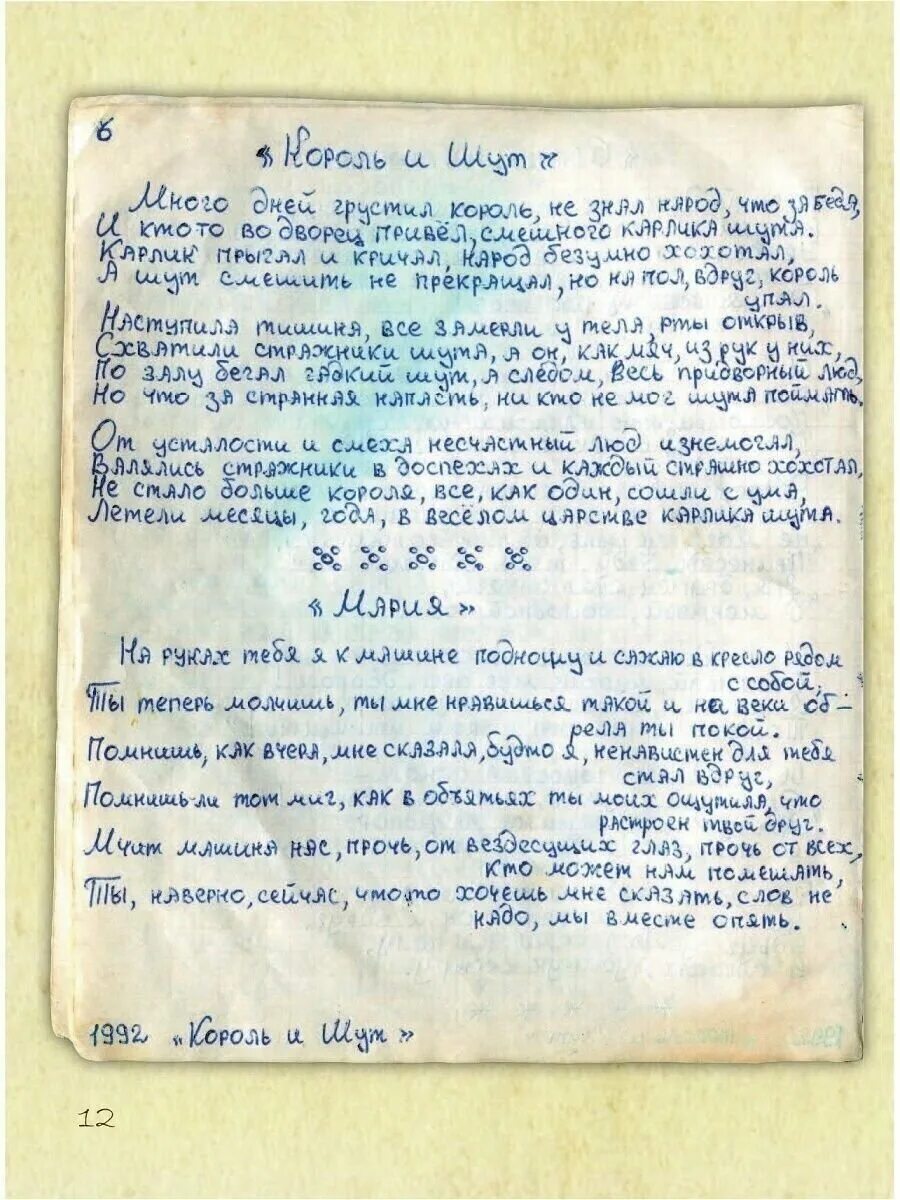 6
«Король и Шут»
Много дней грустил король, не знал народ, что за беда,
И кто то во дворец привёл, смешного карлика шута.
Карлик прыгал и кричал, народ безумно хохотал,
А шут смешить не прекращал, но на пол, вдруг, король
упал.
Наступила тишина, все замерли у тела, рты открыв,
Схватили стражники шута, а он, как мяч, из рук у них,
По залу бегал гадкий шут, а следом, весь придворный люд,
Но что за странная напасть, ни кто не мог шута поймать.
От усталости и смеха несчастный люд изнемогал,
Валялись стражники в доспехах и каждый страшно хохотал,
Не стало больше короля, все, как один, сошли с ума,
Летели месяцы, года, в весёлом царстве карлика шута.
«Мария»
На руках тебя я к машине подношу и сажаю в кресло рядом
с собой,
Ты теперь молчишь, ты мне нравишься такой и на веки об-
рела ты покой.
Помнишь, как вчера, мне сказала, будто я, ненавистен для тебя
стал вдруг,
Помнишь-ли тот миг, как в объятьях ты моих ощутила, что
растроен твой друг.
Мчит машина нас, прочь, от вездесущих глаз, прочь от всех,
кто может нам помешать,
Ты, наверно, сейчас, что то хочешь мне сказать, слов не
надо, мы вместе опять.
1992 «Король и Шут»
12